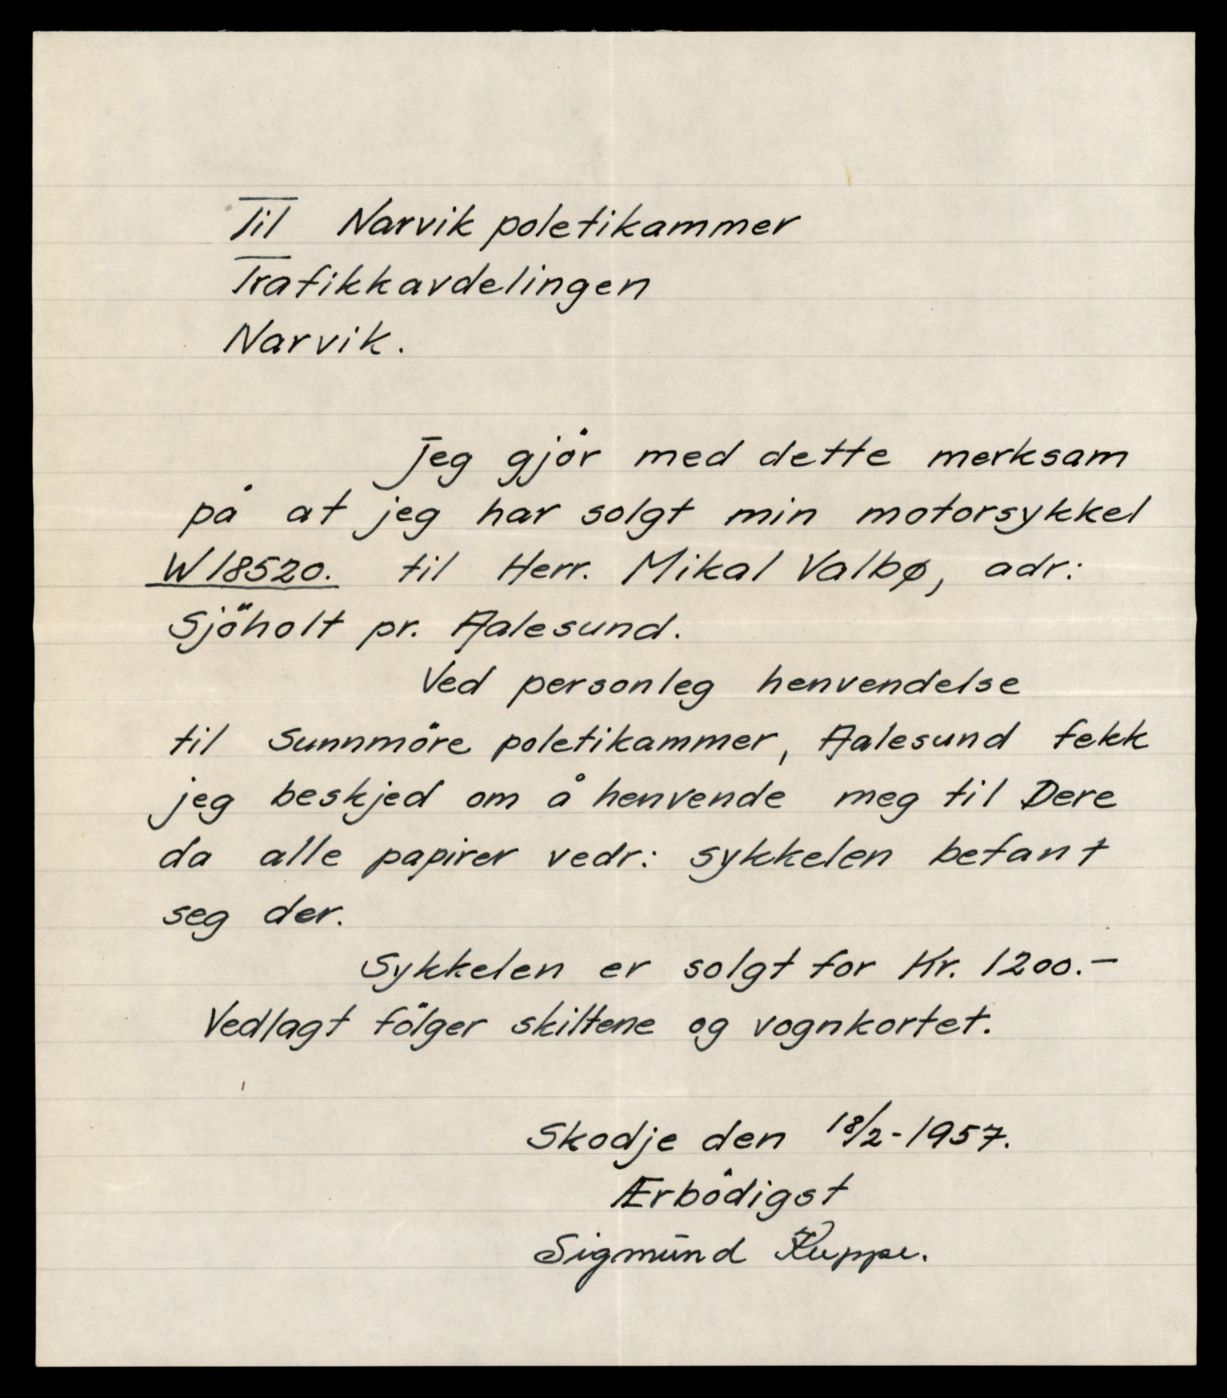 Til Narvik poletikammer
Trafikkavdelingen
Narvik.
Jeg gjör med dette merksam
på at jeg har solgt min motorsykkel
W18520. til Herr. Mikal Valbø, adr:
Sjöholt pr. Aalesund.
Ved personleg henvendelse
til Sunnmöre poletikammer, Aalesund fekk
jeg beskjed om å henvende meg til Dere
da alle papirer vedr: sykkelen befant
seg der.
Sykkelen er solgt for Kr. 1200.-
Vedlagt fölger skiltene og vognkortet.
Skodje den 18/2-1957.
Ærbödigst
Sigmund